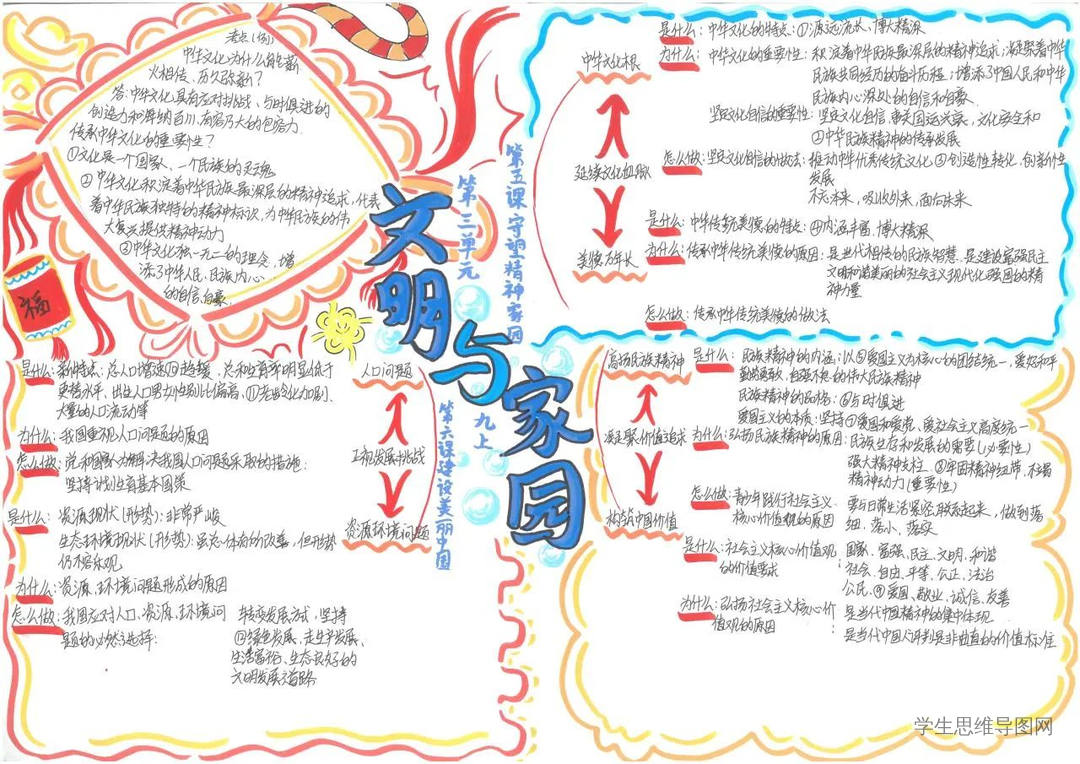 考点(例)
中华文化为什么能薪
火相传、历久弥新?
答:中华文化具有应对挑战、与时俱进的
创造力和海纳百川、有容乃大的包容力.
传承中华文化的重要性?
①文化是一个国家、一个民族的灵魂
②中华文化积淀着中华民族最深层的精神追求,代表
着中华民族独特的精神标识,为中华民族的伟
大复兴提供精神动力
③中华文化独一无二的理念,增
添了中华人民、民族内心
的自信、自豪.
福
文明与家园
第三单元
第五课 守望精神家园
九上
第六课建设美丽中国
中华文化根
延续文化血脉
美德万年长
是什么:中华文化的特点:①源远流长、博大精深
为什么:中华文化的重要性:积淀着中华民族最深层的精神追求,凝聚着中华
民族共同经历的奋斗历程;增添了中国人民和中华
民族内心深处的自信和自豪.
坚定文化自信的重要性:坚定文化自信,事关国运兴衰,文化安全和
②中华民族精神的传承发展
怎么做:坚定文化自信的做法:推动中华优秀传统文化③创造性转化、创新性
发展
不忘本来,吸收外来,面向未来
是什么:中华传统美德的特点:④内涵丰富、博大精深
为什么:传承中华传统美德的原因:是世代相传的民族智慧,是建设富强民主
文明和谐美丽的社会主义现代化强国的精
神力量
怎么做:传承中华传统美德的做法
人口问题
正视发展挑战
资源环境问题
是什么:新特点:总人口增速⑩趋缓,总和生育率明显低于
更替水平,出生人口男女性别比偏高,⑪老龄化加剧、
大量的人口流动等
为什么:我国重视人口问题的原因
怎么做:党和国家为解决我国人口问题采取的措施:
坚持计划生育基本国策
是什么:资源现状(形势):非常严峻
生态环境现状(形势):虽总体有所改善,但形势
仍不容乐观
为什么:资源、环境问题形成的原因
怎么做:我国应对人口、资源、环境问
题的必然选择:
转变发展方式,坚持
⑫绿色发展,走生产发展、
生活富裕、生态良好的
文明发展之道路
高扬民族精神
凝聚价值追求
构筑中国价值
是什么:民族精神的内涵:以⑤爱国主义为核心的团结统一、爱好和平
勤劳勇敢、自强不息的伟大民族精神
民族精神的品格:⑥与时俱进
爱国主义的本质:坚持⑦爱国和爱党、爱社会主义高度统一
为什么:弘扬民族精神的原因:民族生存和发展的需要(必要性)
强大精神支柱、⑧牢固精神纽带、不竭
精神动力(重要性)
怎么做:青少年践行社会主义
核心价值观的原因
要与日常生活紧密联系起来,做到落
细、落小、落实
是什么:社会主义核心价值观
的价值要求
国家:富强、民主、文明、和谐
社会:自由、平等、公正、法治
公民:⑨爱国、敬业、诚信、友善
为什么:弘扬社会主义核心价
值观的原因
:是当代中国精神的集中体现
:是当代中国人评判是非曲直的价值标准
学生思维导图网